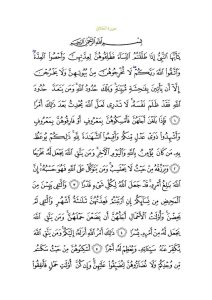 سورة الطلاق
بِسْمِ اللَّهِ الرَّحْمَٰنِ الرَّحِيمِ
يَٰٓأَيُّهَا النَّبِيُّ إِذَا طَلَّقْتُمُ النِّسَآءَ فَطَلِّقُوهُنَّ لِعِدَّتِهِنَّ وَأَحْصُوا الْعِدَّةَ
وَاتَّقُوا اللَّهَ رَبَّكُمْ لَا تُخْرِجُوهُنَّ مِنۢ بُيُوتِهِنَّ وَلَا يَخْرُجْنَ
إِلَّآ أَن يَأْتِينَ بِفَٰحِشَةٍ مُّبَيِّنَةٍ وَتِلْكَ حُدُودُ اللَّهِ وَمَن يَتَعَدَّ حُدُودَ
اللَّهِ فَقَدْ ظَلَمَ نَفْسَهُ لَا تَدْرِي لَعَلَّ اللَّهَ يُحْدِثُ بَعْدَ ذَٰلِكَ أَمْرًا
١ فَإِذَا بَلَغْنَ أَجَلَهُنَّ فَأَمْسِكُوهُنَّ بِمَعْرُوفٍ أَوْ فَارِقُوهُنَّ بِمَعْرُوفٍ
وَأَشْهِدُوا ذَوَيْ عَدْلٍ مِّنكُمْ وَأَقِيمُوا الشَّهَٰدَةَ لِلَّهِ ذَٰلِكُمْ يُوعَظُ
بِهِ مَن كَانَ يُؤْمِنُ بِاللَّهِ وَالْيَوْمِ الْءَاخِرِ وَمَن يَتَّقِ اللَّهَ يَجْعَل لَّهُ مَخْرَجًا
٢ وَيَرْزُقْهُ مِنْ حَيْثُ لَا يَحْتَسِبُ وَمَن يَتَوَكَّلْ عَلَى اللَّهِ فَهُوَ حَسْبُهُ إِنَّ
اللَّهَ بَٰلِغُ أَمْرِهِ قَدْ جَعَلَ اللَّهُ لِكُلِّ شَيْءٍ قَدْرًا ٣ وَالَّٰٓـِٔي يَئِسْنَ مِنَ
الْمَحِيضِ مِن نِّسَآئِكُمْ إِنِ ارْتَبْتُمْ فَعِدَّتُهُنَّ ثَلَٰثَةُ أَشْهُرٍ وَالَّٰٓـِٔي لَمْ
يَحِضْنَ وَأُولَٰتُ الْأَحْمَالِ أَجَلُهُنَّ أَن يَضَعْنَ حَمْلَهُنَّ وَمَن يَتَّقِ اللَّهَ
يَجْعَل لَّهُ مِنْ أَمْرِهِ يُسْرًا ٤ ذَٰلِكَ أَمْرُ اللَّهِ أَنزَلَهُ إِلَيْكُمْ وَمَن يَتَّقِ اللَّهَ
يُكَفِّرْ عَنْهُ سَيِّـَٔاتِهِ وَيُعْظِمْ لَهُ أَجْرًا ٥ أَسْكِنُوهُنَّ مِنْ حَيْثُ سَكَنتُم
مِّن وُجْدِكُمْ وَلَا تُضَآرُّوهُنَّ لِتُضَيِّقُوا عَلَيْهِنَّ وَإِن كُنَّ أُولَٰتِ حَمْلٍ فَأَنفِقُوا